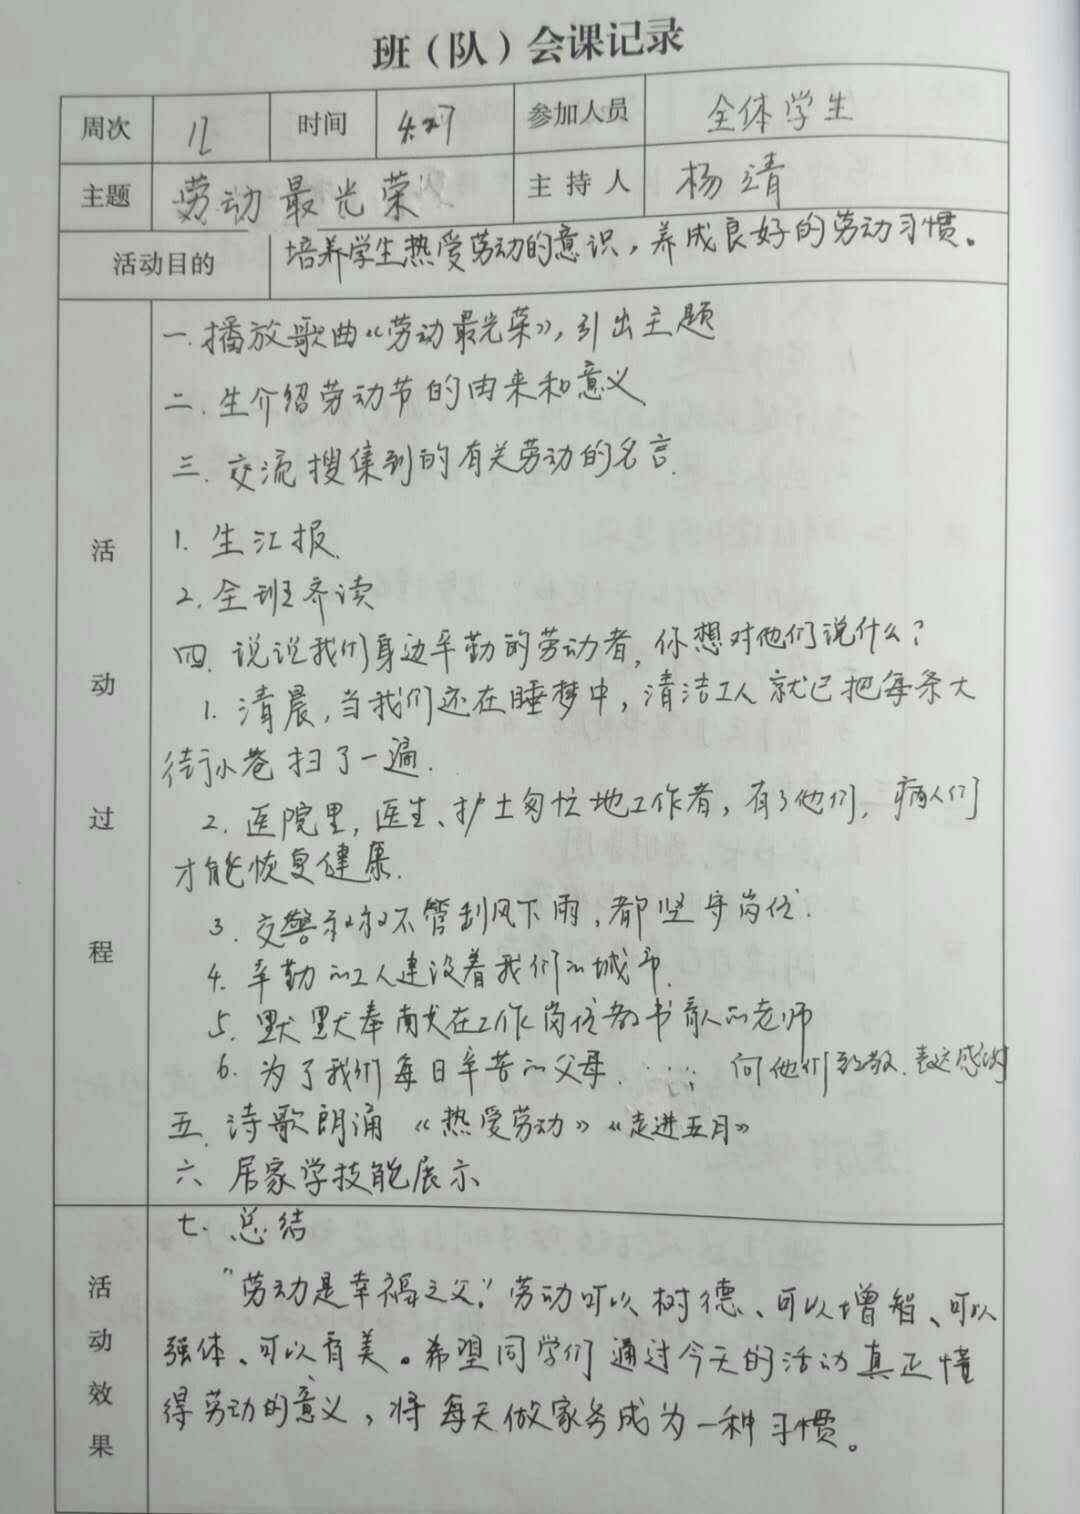 班（队）会课记录
周次 12 时间 4.27 参加人员 全体学生
主题 劳动最光荣 主持人 杨靖
活动目的 培养学生热爱劳动的意识，养成良好的劳动习惯。
活动过程
一.播放歌曲《劳动最光荣》，引出主题
二.生介绍劳动节的由来和意义
三.交流搜集到的有关劳动的名言.
1.生汇报.
2.全班齐读
四.说说我们身边辛勤的劳动者，你想对他们说什么？
1.清晨，当我们还在睡梦中，清洁工人就已把每条大
街小巷扫了一遍.
2.医院里，医生、护士匆忙地工作着，有了他们，病人们
才能恢复健康.
3.交警叔叔不管刮风下雨，都坚守岗位.
4.辛勤的工人建设着我们的城市.
5.默默奉献在工作岗位教书育人的老师
6.为了我们每日辛苦的父母. …… 向他们致敬.表达感谢
五.诗歌朗诵《热爱劳动》《走进五月》
六、居家学技能展示
七.总结
活动效果
"劳动是幸福之父."劳动可以树德、可以增智、可以
强体、可以育美。希望同学们通过今天的活动真正懂
得劳动的意义，将每天做家务成为一种习惯。